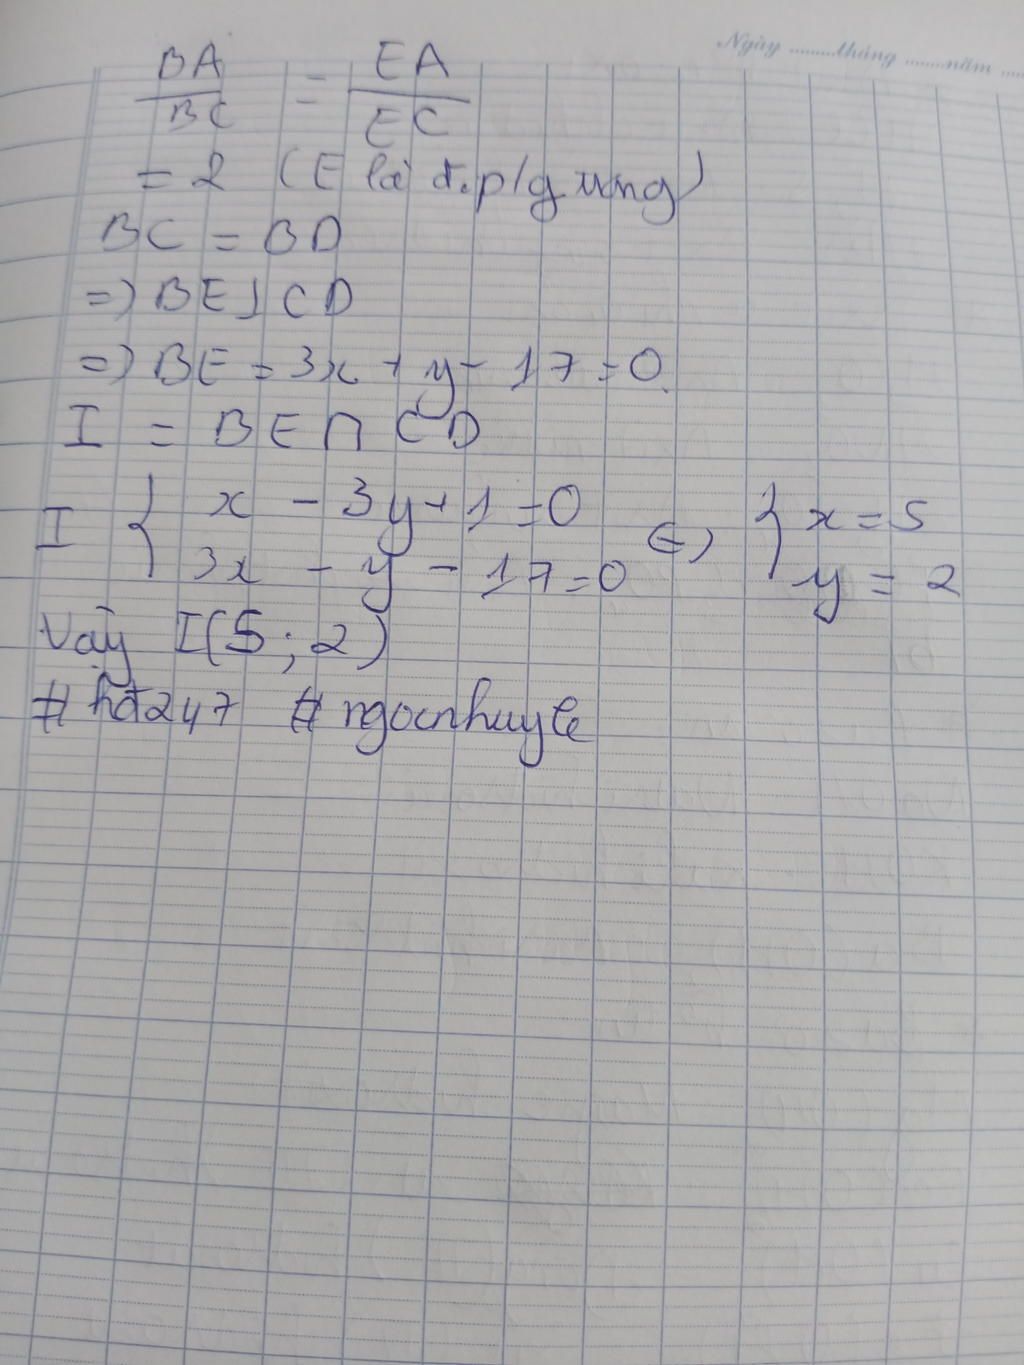 Ngày ........tháng ........năm ....
BA/BC = EA/EC
= 2 (E là đ.p/g ứng)
BC = BD
=) BE ⊥ CD
=) BE = 3x + y - 17 = 0
I = BE ∩ CD
I { x - 3y + 1 = 0 (=) { x = 5
3x - y - 17 = 0 y = 2
Vậy I(5 ; 2)
# hđ247 # ngocnhuyle